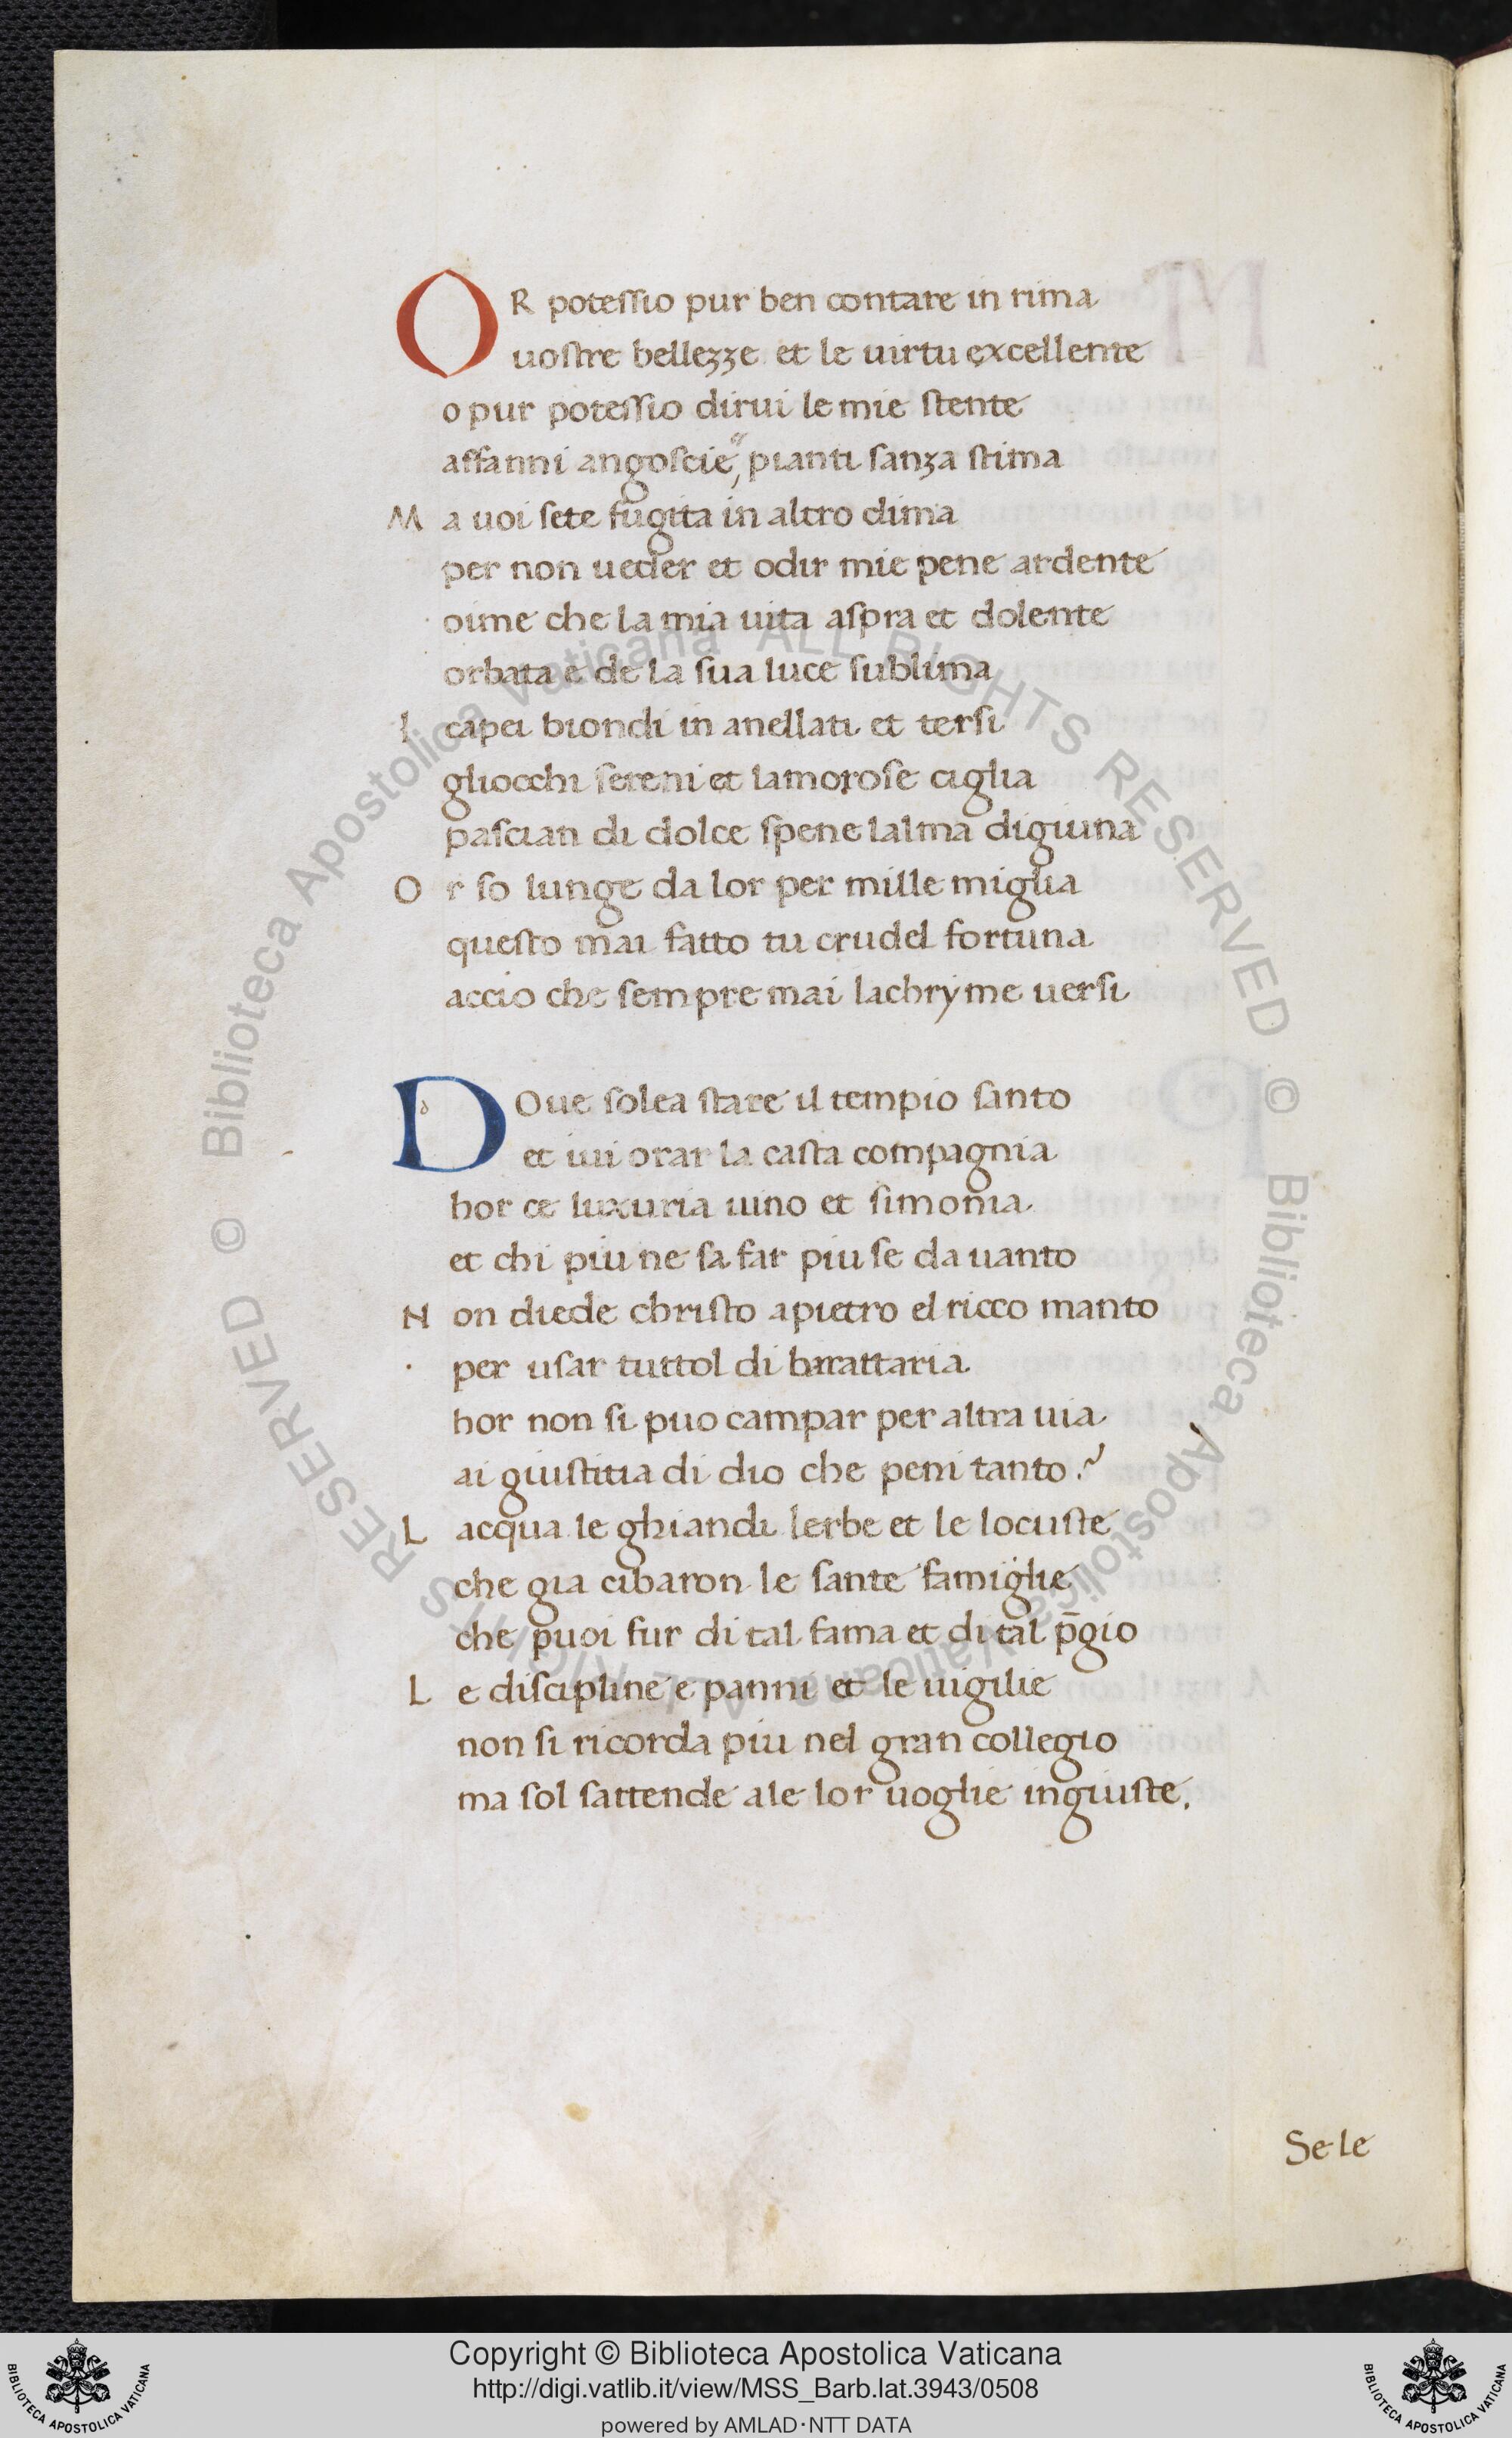 OR potessio pur ben contare in rima
uostre bellezze et le uirtu excellente
o pur potessio dirui le mie stente
affanni angoscie, pianti sanza stima
Ma uoi sete fugita in altro clima
per non ueder et odir mie pene ardente
oime che la mia uita aspra et dolente
orbata e de la sua luce sublima
I capei biondi in anellati et tersi
gliocchi sereni et lamorose ciglia
pascian di dolce spene lalma digiuna
Or so lunge da lor per mille miglia
questo mai fatto tu crudel fortuna
accio che sempre mai lachryme uersi
DOue solea stare il tempio santo
et iui orar la casta compagnia
hor ce luxuria uino et simonia
et chi piu ne sa far piu se da uanto
Non diede christo apietro el ricco manto
per usar tuttol di barattaria
hor non si puo campar per altra uia
ai giustitia di dio che peni tanto?
Lacqua le ghiandi lerbe et le locuste
che gia cibaron le sante famiglie
che puoi fur di tal fama et di tal p̄gio
Le discipline e panni et le uigilie
non si ricorda piu nel gran collegio
ma sol sattende ale lor uoglie ingiuste.
Se le
Biblioteca Apostolica Vaticana ALL RIGHTS RESERVED ©
Biblioteca Apostolica Vaticana ALL RIGHTS RESERVED ©
Copyright © Biblioteca Apostolica Vaticana
http://digi.vatlib.it/view/MSS_Barb.lat.3943/0508
powered by AMLAD·NTT DATA
BIBLIOTECA APOSTOLICA VATICANA
BIBLIOTECA APOSTOLICA VATICANA